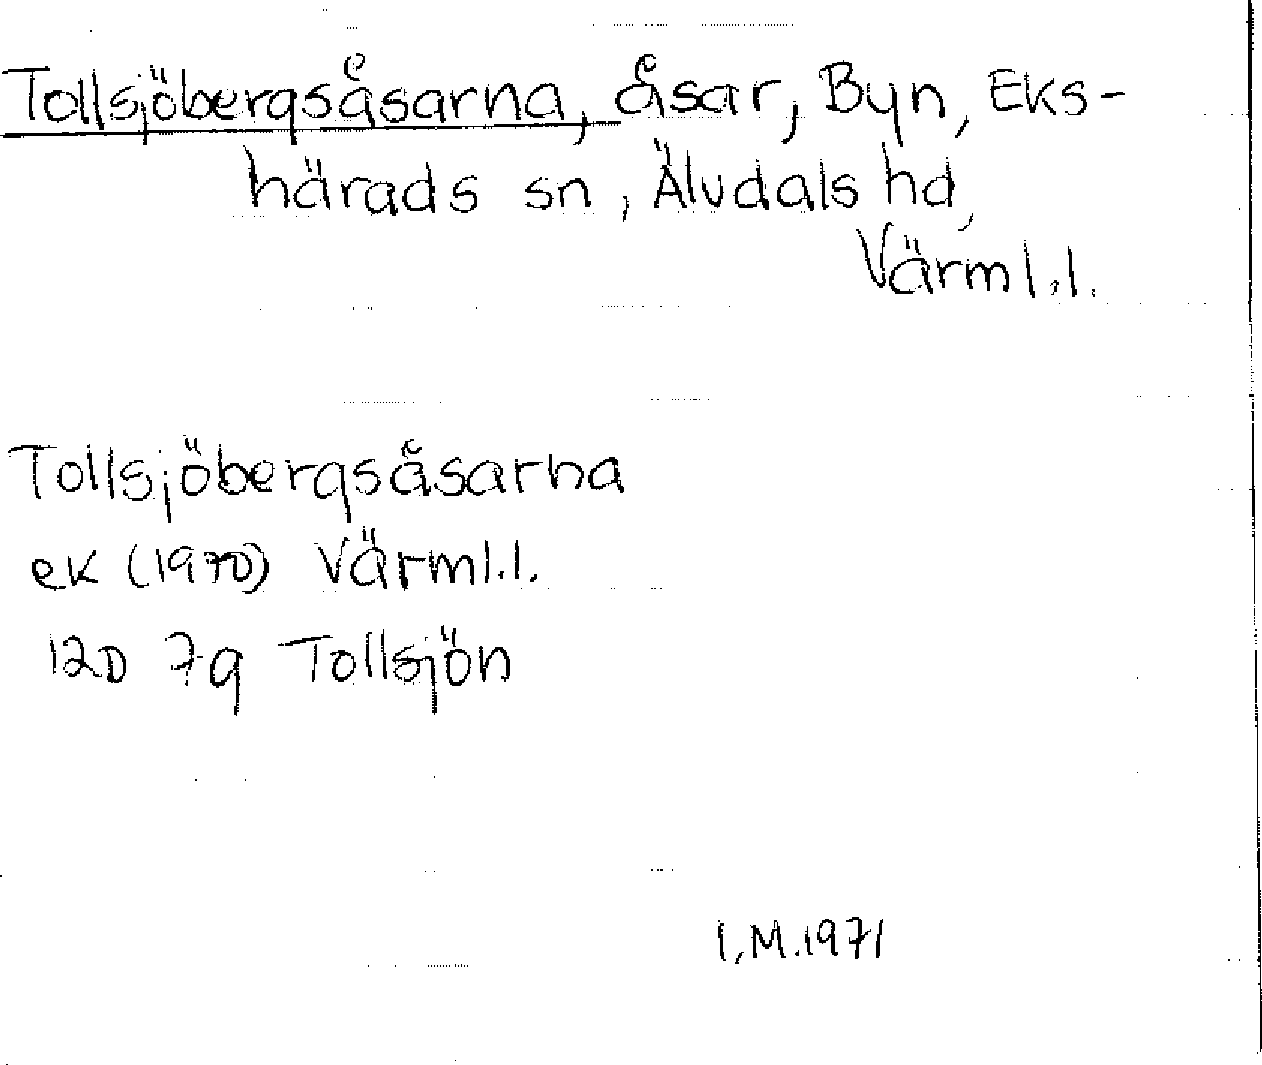 Tollsjöbergsåsarna, åsar, Byn, Eks-
härads sn, Älvdals hd,
Värml.l.
Tollsjöbergsåsarna
ek (1970) Värml.l.
12D 7g Tollsjön
I.M.1971